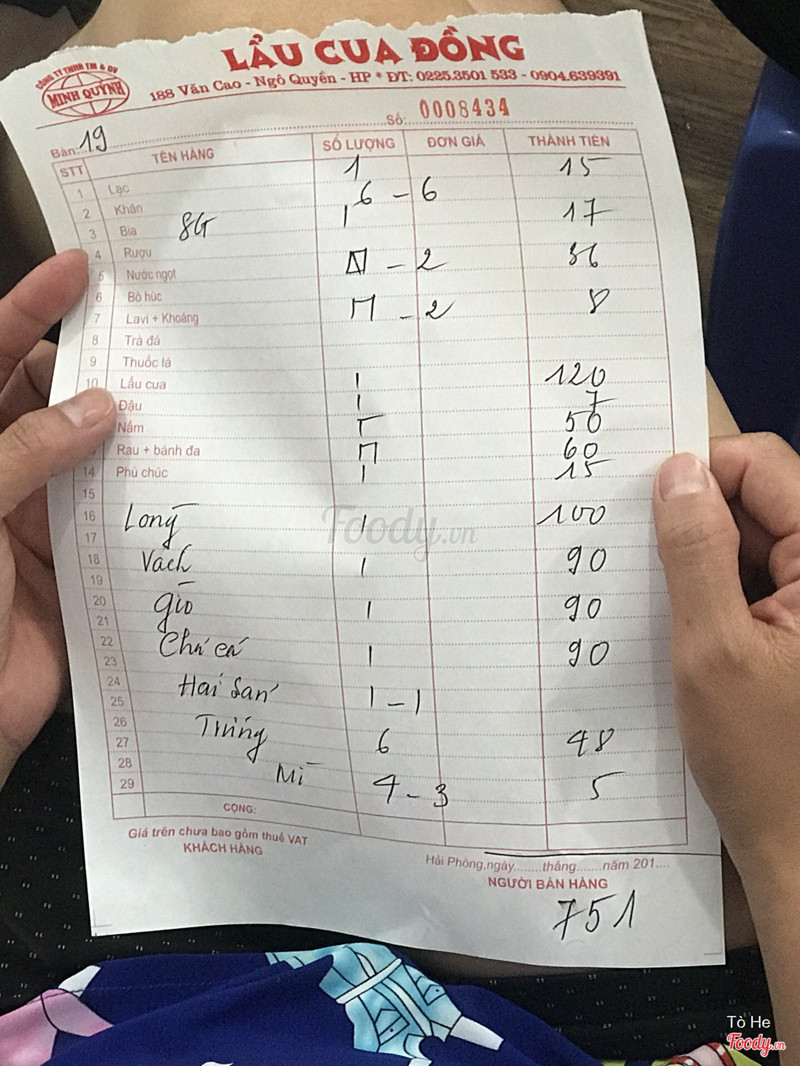 LẨU CUA ĐỒNG
CÔNG TY TNHH TM & DV
MINH QUỲNH
188 Văn Cao - Ngô Quyền - HP * ĐT: 0225.3501 533 - 0904.639391
Số: 0008434
Bàn: 19
STT TÊN HÀNG SỐ LƯỢNG ĐƠN GIÁ THÀNH TIỀN
1 Lạc 1 15
2 Khăn 6 - 6
3 Bia SG 1 17
4 Rượu
5 Nước ngọt - 2 36
6 Bò húc
7 Lavi + Khoáng - 2 8
8 Trà đá
9 Thuốc lá
10 Lẩu cua 1 120
Đậu 1 7
Nấm 50
Rau + bánh đa 60
14 Phù chúc 1 15
15
16 Lòng 1 100
17
18 Vách 1 90
19
20 giò 1 90
21
22 Chả cá 1 90
23
24 Hải Sản 1 - 1
25
26 Trứng 6 48
27
28 Mì 4 - 3 5
29
CỘNG:
Giá trên chưa bao gồm thuế VAT
KHÁCH HÀNG
Hải Phòng, ngày........tháng.......năm 201....
NGƯỜI BÁN HÀNG
751
Foody.vn
Tò He
Foody.vn